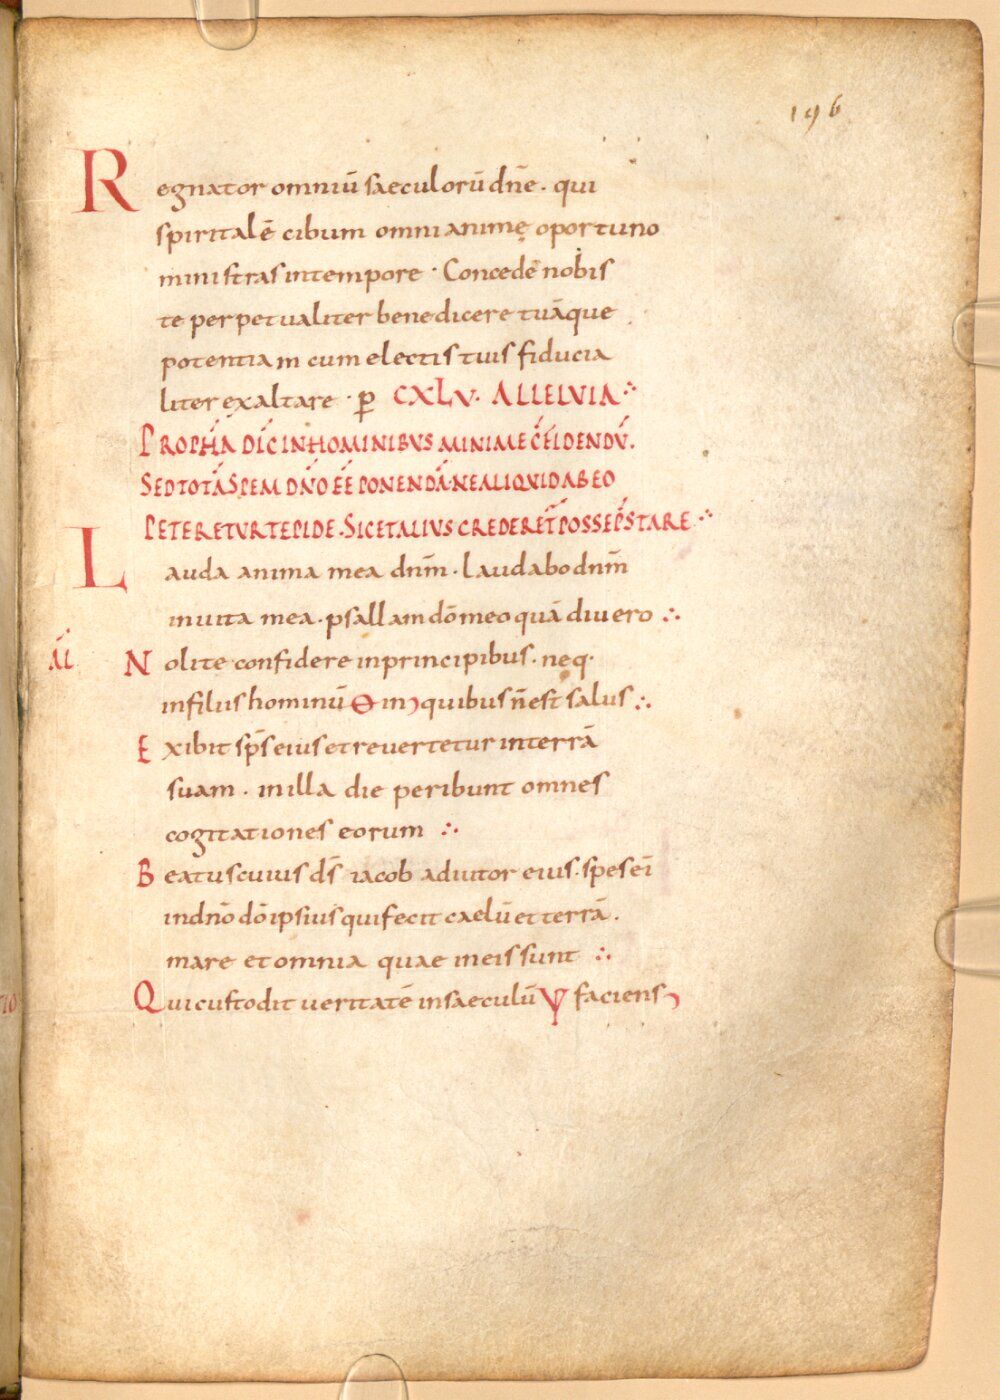 196
Regnator omniū saeculorū dn̄e · qui
spiritalē cibum omni animę oportuno
ministras in tempore · Concede nobis
te perpetualiter benedicere tuāque
potentiam cum electis tuis fiducia
liter exaltare · ꝑ CXLV· ALLELVIA ∴
PROPHĀ DĪC IN HOMINIBVS MINIME C̄FIDENDV̄.
SED TOTĀ SPEM DN̄O EE̅ PONENDĀ· NE ALIQUID AB EO
PETERETUR TEPIDE. SIC ET ALIVS CREDERET̄ POSSE P̄STARE ∴
Lauda anima mea dn̄m · laudabo dn̄m
in uita mea · psallam dō meo quā diu ero ∴
Nolite confidere in principibus · neq·
in filiis hominū ⊖ in quibus n̄ est salus ∴
Exibit sp̄s eius et reuertetur in terrā
suam · in illa die peribunt omnes
cogitationes eorum ∴
Beatus cuius ds̄ iacob adiutor eius · spes eī
in dn̄o dō ipsius qui fecit caelū et terrā .
mare et omnia quae in eis sunt ∴
Qui custodit ueritatē in saeculū faciens